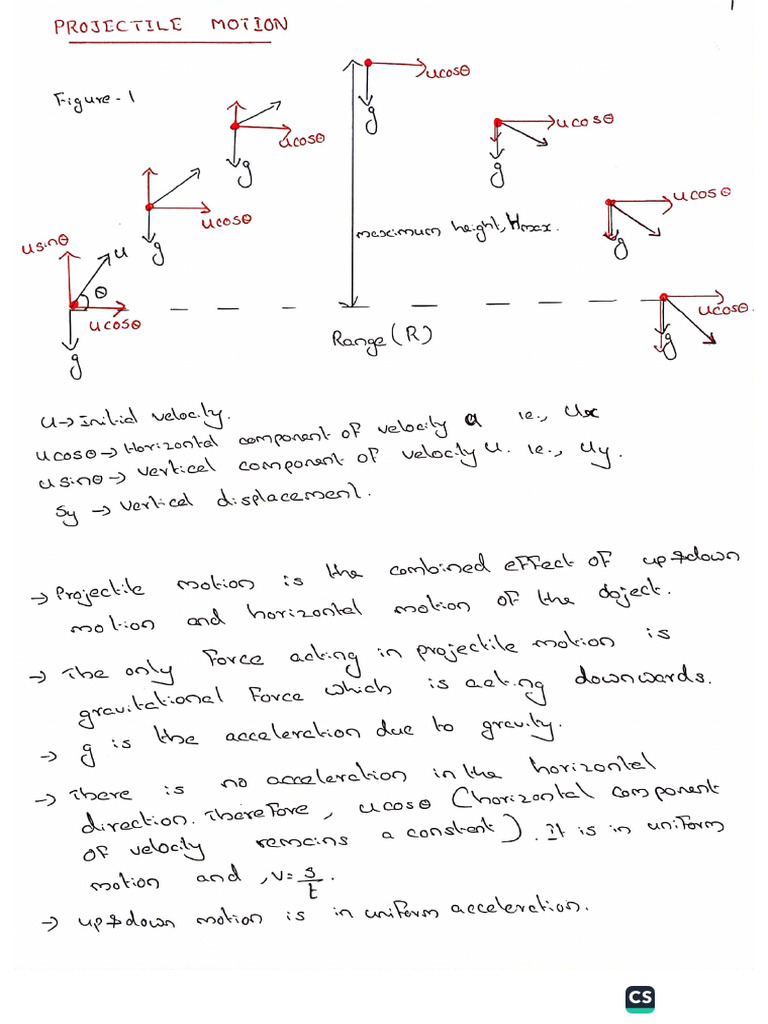 1
PROJECTILE MOTION
Figure-1
ucosθ
g
ucosθ
g
ucosθ
g
ucosθ
g
ucosθ
g
maximum height, Hmax.
usinθ
u
θ
ucosθ
g
ucosθ
g
Range (R)
u → Initial velocity.
ucosθ → Horizontal component of velocity u ie., ux
usinθ → Vertical component of velocity u. ie., uy.
Sy → Vertical displacement.
→ Projectile motion is the combined effect of up & down
motion and horizontal motion of the object.
→ The only force acting in projectile motion is
gravitational force which is acting downwards.
→ g is the acceleration due to gravity.
→ There is no acceleration in the horizontal
direction. Therefore, ucosθ (horizontal component
of velocity remains a constant). It is in uniform
motion and , v = s/t.
→ up & down motion is in uniform acceleration.
CS